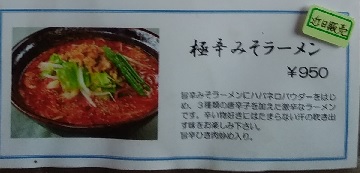 近日販売
極辛みそラーメン
￥950
旨辛みそラーメンにハバネロパウダーをはじ
め、3種類の唐辛子を加えた激辛なラーメン
です。辛い物好きにはたまらない汗の吹き出
す味をお楽しみ下さい。
旨辛ひき肉炒め入り。